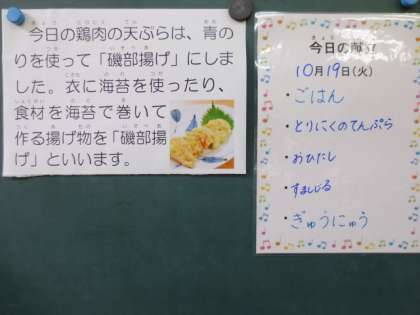 今日の鶏肉の天ぷらは、青の
りを使って「磯部揚げ」にしま
した。衣に海苔を使ったり、
食材を海苔で巻いて
作る揚げ物を「磯部揚
げ」といいます。
今日の献立
10月19日(火)
・ごはん
・とりにくのてんぷら
・おひたし
・すましじる
・ぎゅうにゅう